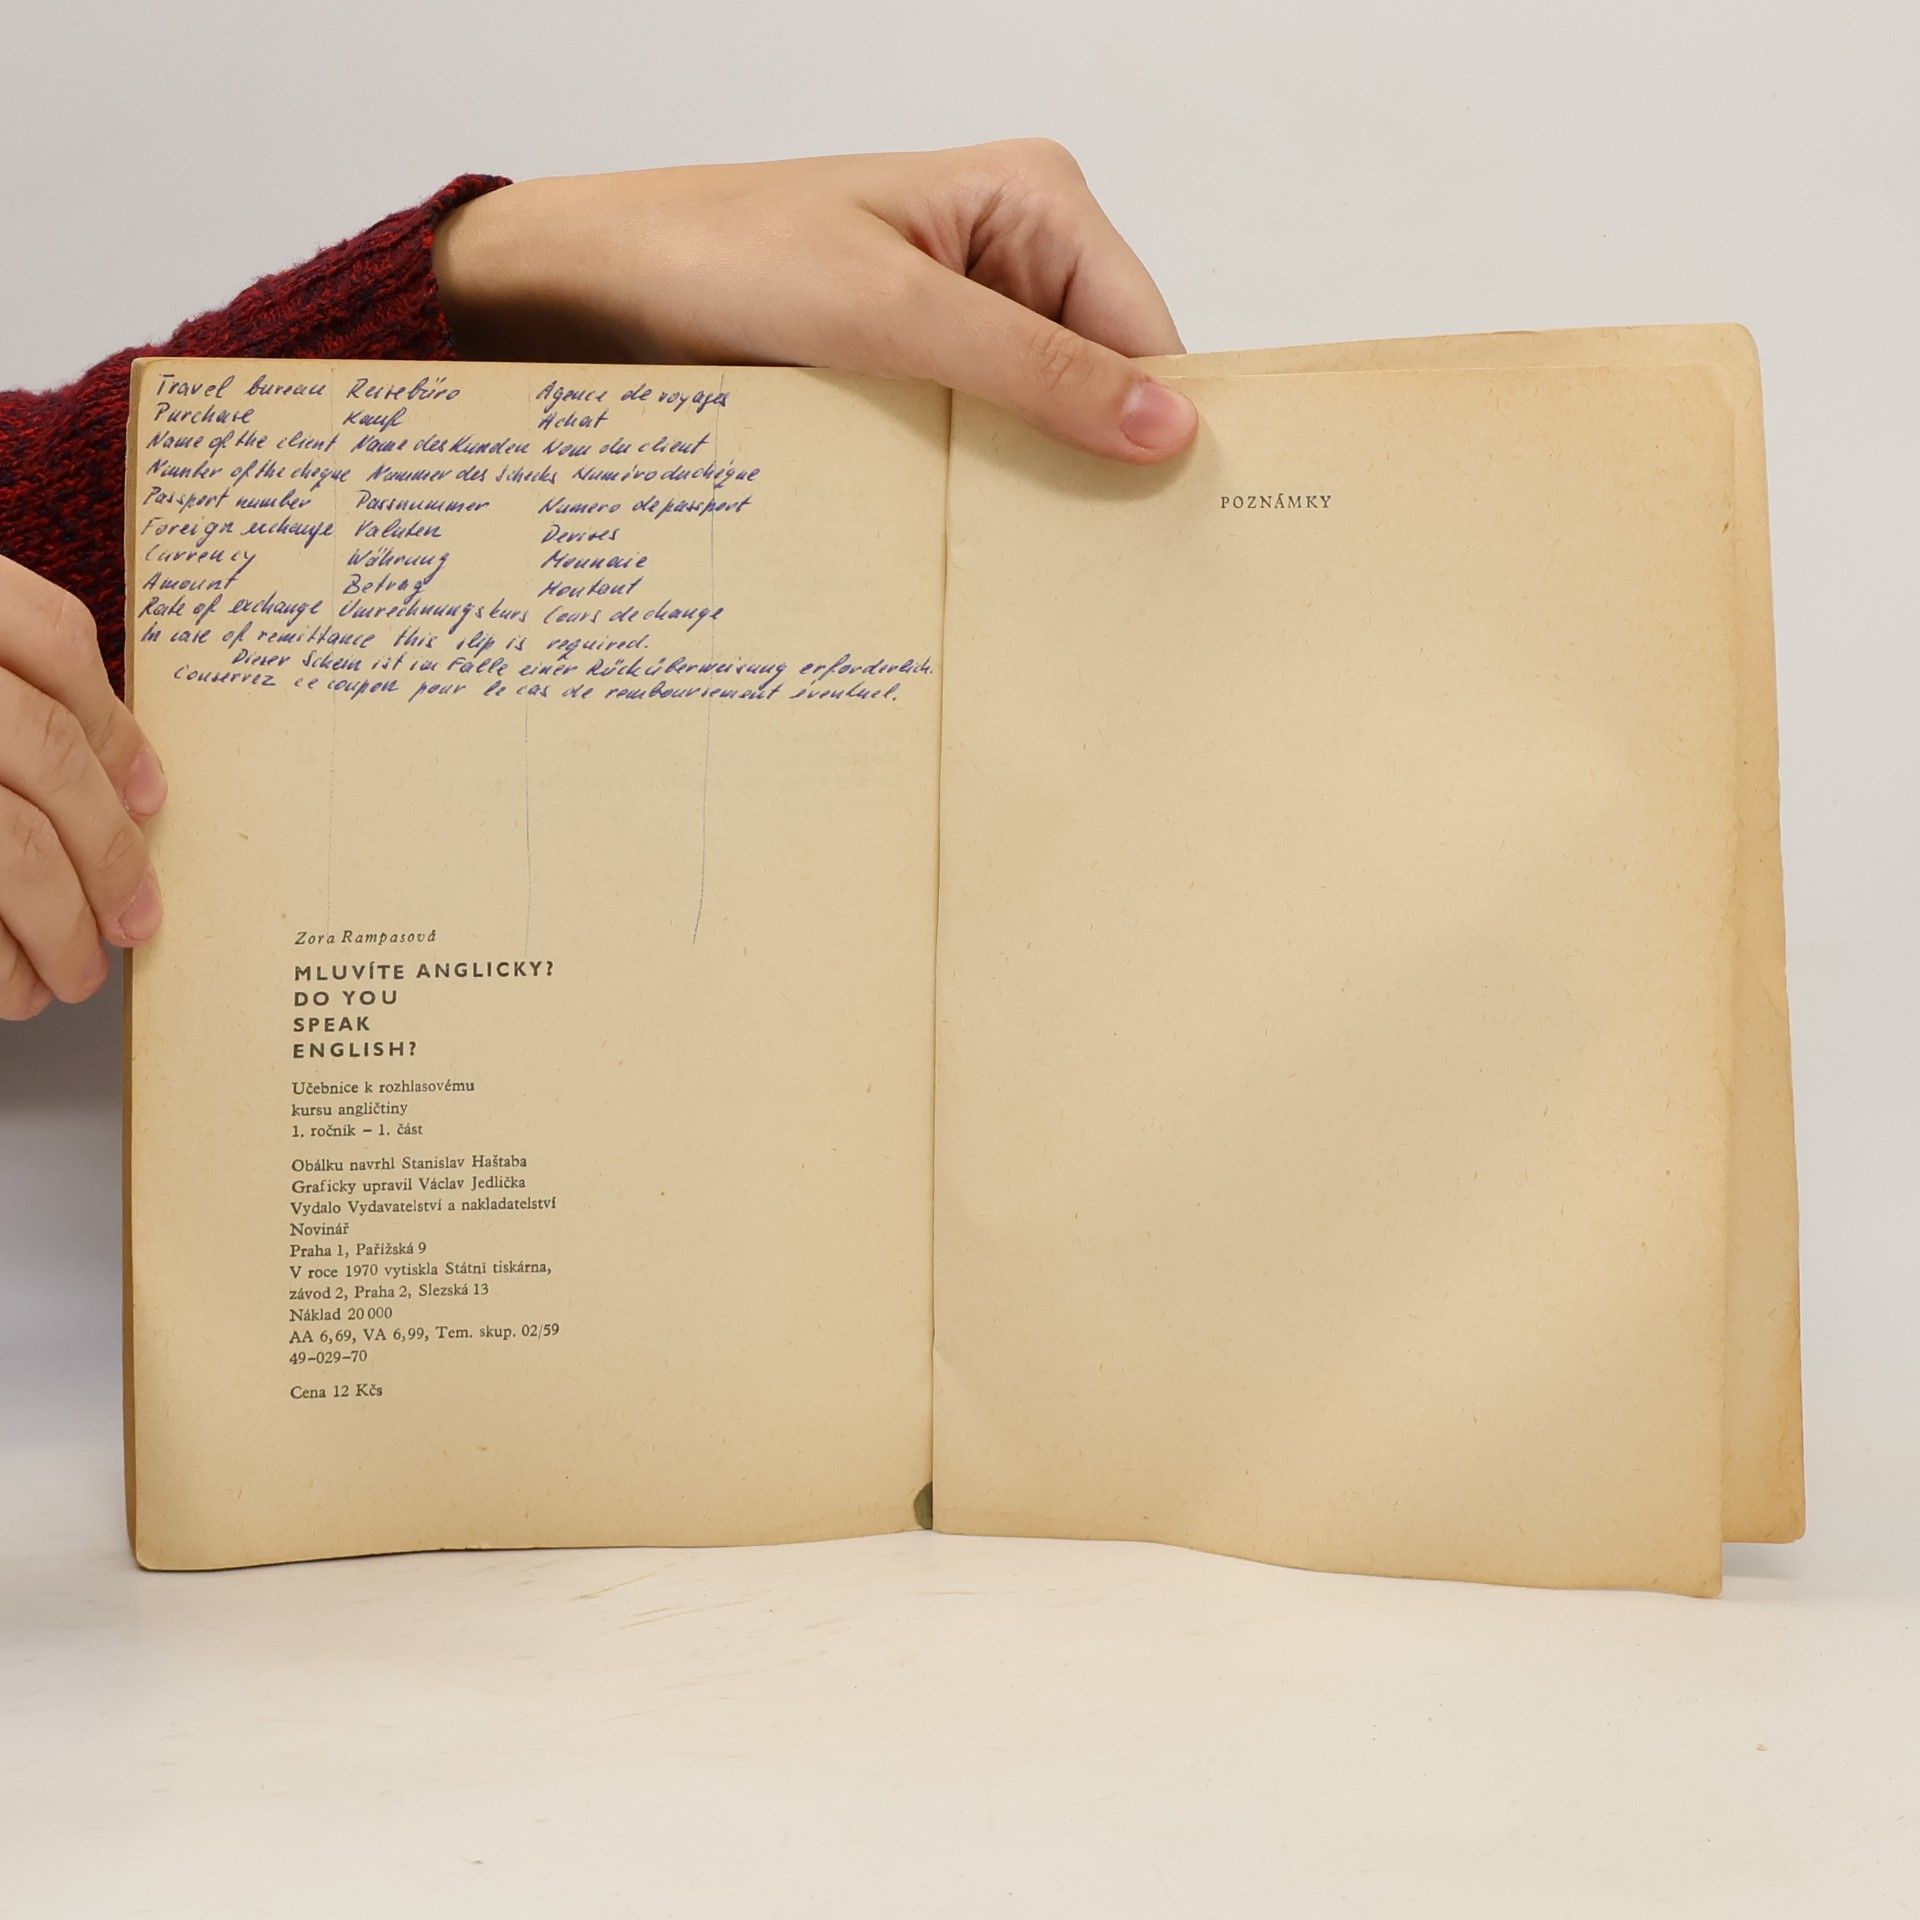 Travel bureau Reisebüro Agence de voyages
Purchase Kauf Achat
Name of the client Name des Kunden Nom du client
Number of the cheque Nummer des Schecks Numéro du chéque
Passport number Passnummer Numero de passport
Foreign exchange Valuten Devises
Currency Währung Monnaie
Amount Betrag Montant
Rate of exchange Umrechnungskurs Cours de change
In case of remittance this slip is required.
Dieser Schein ist im Falle einer Rücküberweisung erforderlich.
Conservez ce coupon pour le cas de remboursement éventuel.
Zora Rampasová
MLUVÍTE ANGLICKY?
DO YOU
SPEAK
ENGLISH?
Učebnice k rozhlasovému
kursu angličtiny
1. ročník – 1. část
Obálku navrhl Stanislav Haštaba
Graficky upravil Václav Jedlička
Vydalo Vydavatelství a nakladatelství
Novinář
Praha 1, Pařížská 9
V roce 1970 vytiskla Státní tiskárna,
závod 2, Praha 2, Slezská 13
Náklad 20 000
AA 6,69, VA 6,99, Tem. skup. 02/59
49–029–70
Cena 12 Kčs
POZNÁMKY